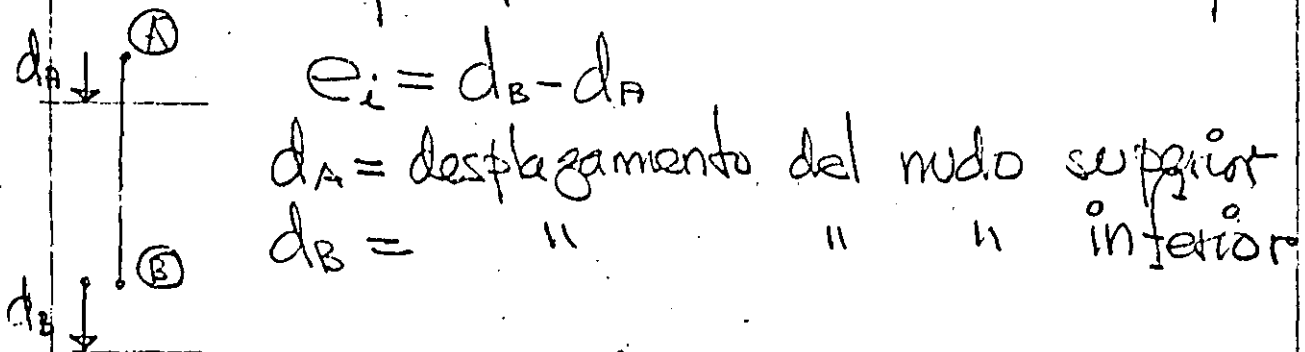 Ⓐ
dA
ei = dB - dA
dA = desplazamiento del nudo superior
dB = " " " inferior
Ⓑ
dB